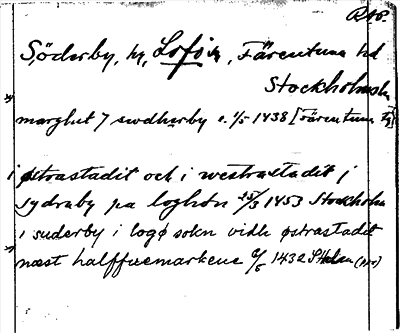 RAp.
Söderby, by, Lofö sn, Färentuna hd
Stockholms län
marghut j swdherby o. 1/5 1438 [Färentuna
i østrastadit och i westrastadit j
sydraby pa loghøn 25/3 1453 Stockholm
i suderby i logø sokn vidh østrastadit
næst halffuemarkene 6/5 1432 SHelm